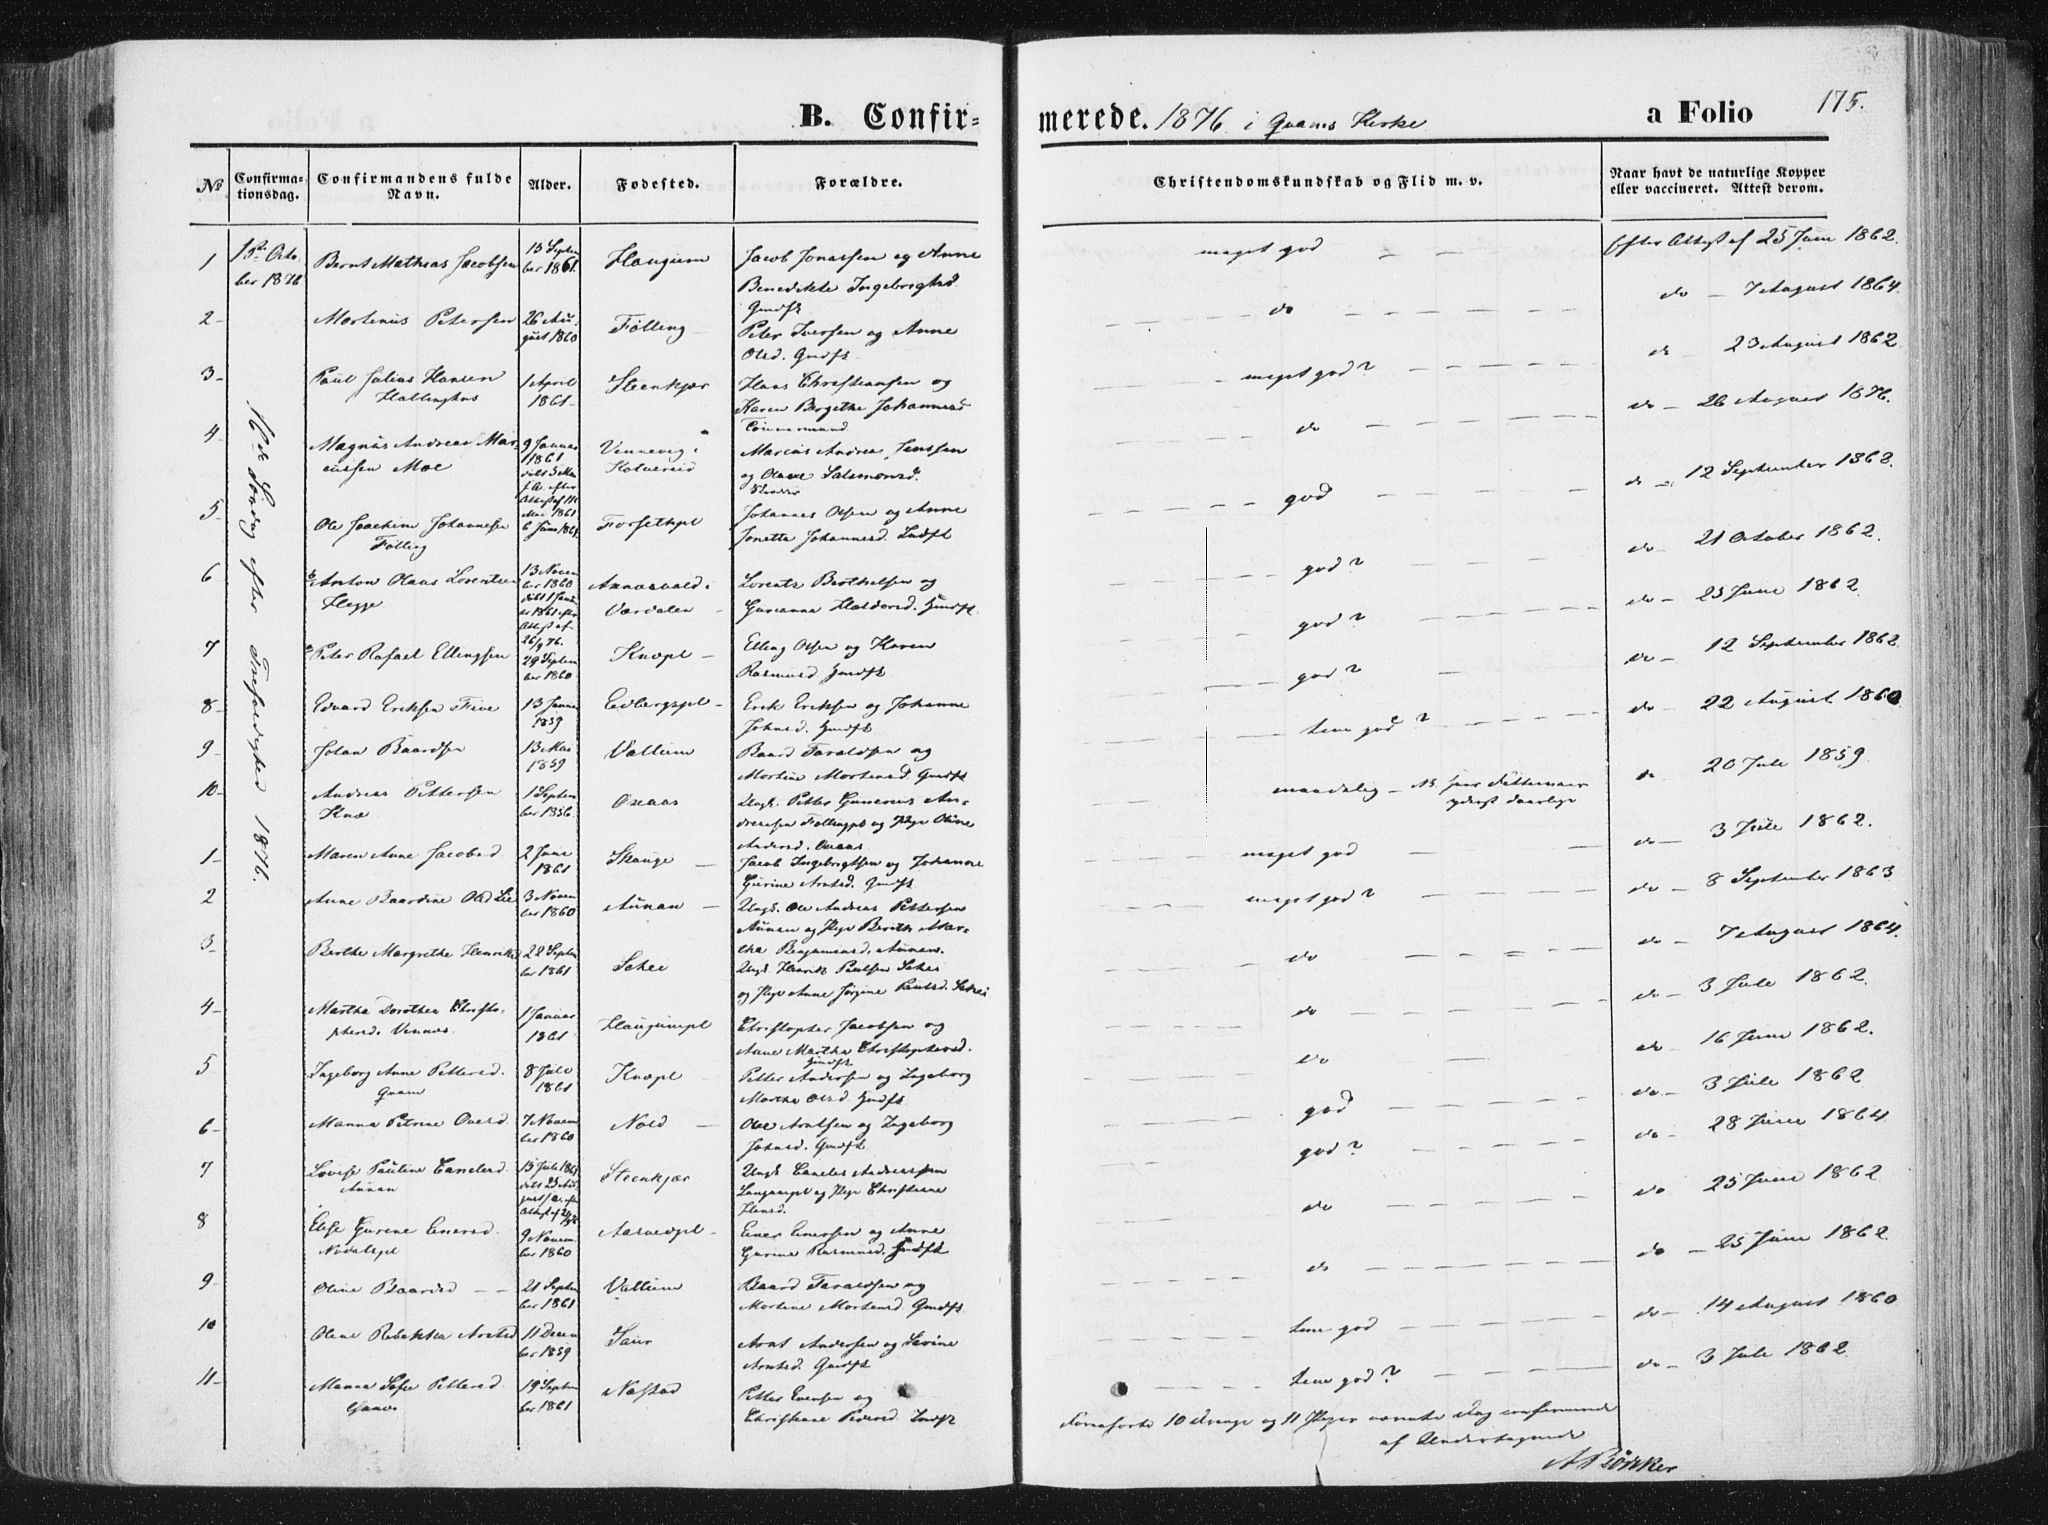 B. Confirmerede. 1876 i Quams Kirke a Folio 175.
No Confirmationsdag. Confirmandens fulde Navn. Alder. Fodested. Forældre. Christendomskundskab og Flid m. v. Naar havt de naturlige Kopper eller vaccineret. Attest derom.
1ste October 1876
16de Søndag efter Trefoldighed 1876.
1 Bernt Mathias Jacobsen 15 September 1861. Haugum Jacob Jonassen og Anne Benedikte Ingebrigtsd. Gmdfk meget god Efter Attest af 25 Juni 1862.
2 Martinus Petersen 26 August 1860 Følling Peter Iversen og Anne Olsd. Gmdfk. do do 7 August 1864.
3 Paul Julius Hansen 1 April 1861 Steenkjær Hans Christiansen og Karen Bergithe Johannesd meget god? do 23 August 1862
4 Magnus Andreas Marcussen Moe 9 Januar 1861 Vennevig i Kolvereid Marcus Andrea Jenssen og Olave Salamonsd. do do 26 August 1876.
5 Ole Joachim Johannesen Følling 6 Juni 1861. Forsethpl Johannes Olsen og Anne Jonetta Johannesd. god do 12 September 1862.
6 Anton Olaus Lorentsen Hegge 13 November 1860 Værdalen Lorents Berthelsen og Gurianna Haldorsd. Gmdfk. god? do 21 October 1862.
7 Peter Rafael Ellingsen 29 September 1860 Knæpl Elling Olsen og Karen Rasmusd Gmdfk god? do 25 Juni 1862.
8 Edvard Eriksen Five 13 Januar 1859 Erik Eriksen og Johanne Johnsd. Gmdfk god? do 12 September 1862.
9 Johan Baardsen 13 Mai 1859 Vallum Baard Taraldsen og Martine Mortensd Gmdfk temo god? do 22 August 1860
10 Andreas Pettersen Knæ 1 September 1856. Oxaas Ungk. Petter Gunerius Andreassen Føllingpl og Pige Oline Andersd. Oxaas maadelig do 20 Juli 1859.
1 Maren Anne Jacobsd 2 Juni 1861 Skauge Jacob Ingebrigtsen og Johanne Gurine Arntsd. Gmdfk meget god do 3 Juli 1862.
2 Anne Baardine Olsd Lie 3 November 1860 Aunan Ungk. Ole Andreas Pettersen Aunan og Pige Berith Martha Benjaminsd. Aunan. meget god? do 8 September 1863
3 Berthe Margrethe Henriksd 22 September 1861 Schei Ungk Henrik Paulsen Schei og Pige Anne Jørgine Paulsd. Schei do do 7 August 1864.
4 Martha Dorothea Christophersd. Vennes. 1 Januar 1861 Haugumpl Christopher Jacobsen og Anne Martha Christophersd. Gmdfk do do 3 Juli 1862.
5 Ingeborg Anne Pettersd. Quam 8 Juli 1861 Knæpl Petter Andersen og Ingeborg Martha Olsd. Gmdfk do do 16 Juni 1862.
6 Manna Petrine Olesd 7 November 1860 Nord Ole Arntsen og Ingeborg Johnsd. Gmdfk god do 3 Juli 1862
7 Lovise Pauline Aunan 15 Juli 1861 Steenkjær Ungk Andreassen og Pige Christiane Hansd. god? do 28 Juni 1864
8 Else Gurine Einersd. 9 November 1860 Einer Einersen og Anne Gurine Rasmusd. Gmdfk do do 25 Juni 1862
9 Oline Baardsd 21 September 1861 Vallum Baard Taraldsen og Martine Mortensd Gmdfk do do 25 Juni 1862.
10 Oline Rebekka Arntsd 11 December 1859 Saur Arnt Andersen og Sevine Arntsd. Gmdfk temo god do 14 August 1860
11 Manna Sofie Pettersd 19 September 1861 Nøstad Petter Evensen og Christiane Pedersd. Gmdfk temo god? do 3 Juli 1862.
Foranførte 10 Drenge og 11 Piger nævnte Dag confirmerede af Undertegnede
A Bødtker